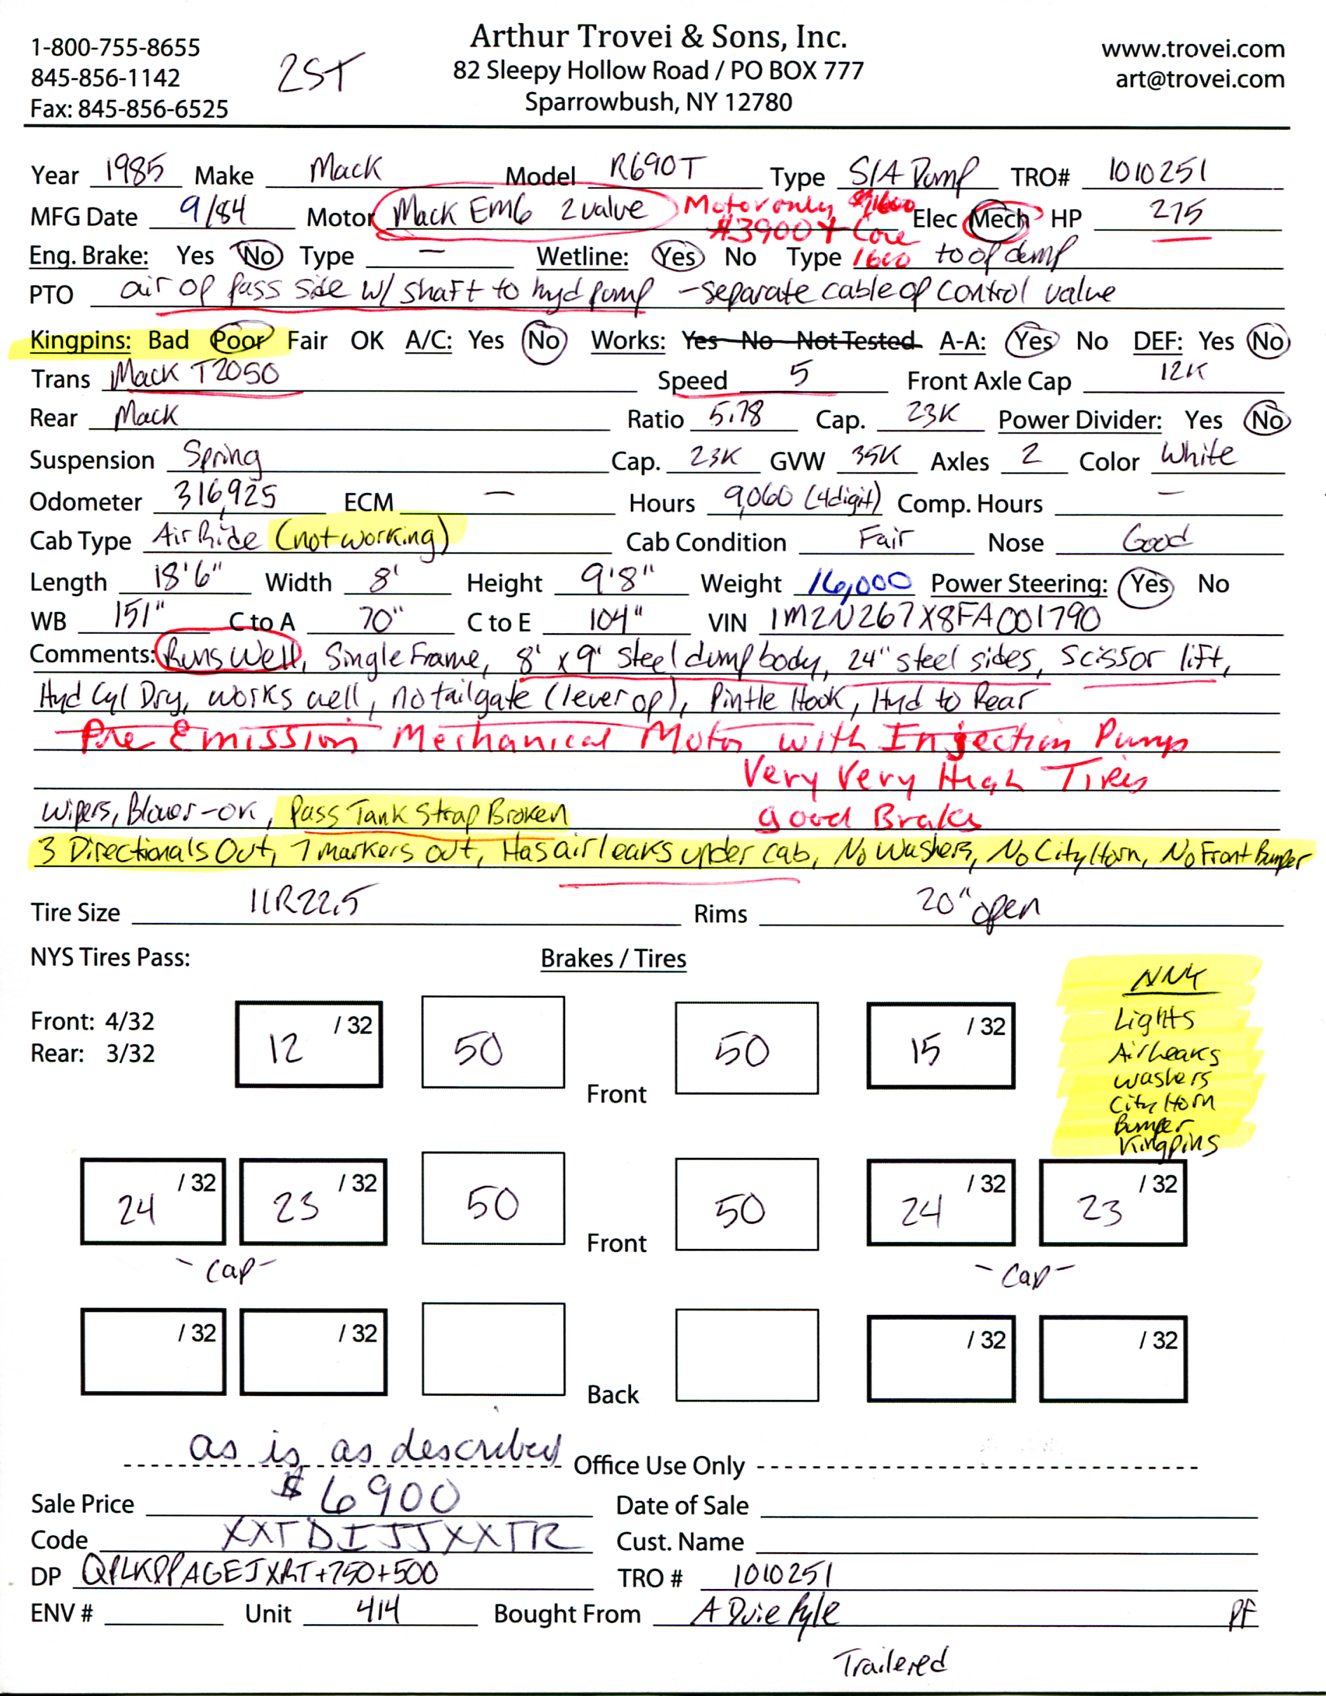 Arthur Trovei & Sons, Inc.
82 Sleepy Hollow Road / PO BOX 777
Sparrowbush, NY 12780
1-800-755-8655
845-856-1142
Fax: 845-856-6525
2ST
www.trovei.com
art@trovei.com
Year 1985 Make Mack Model R690T Type S/A Dump TRO# 1010251
MFG Date 9/84 Motor Mack EM6 2 valve Motor only $1600 Elec Mech HP 275
#3900 + Core
Eng. Brake: Yes No Type — Wetline: Yes No Type 1600 to op dump
PTO air op pass side w/ shaft to hyd pump - separate cable op control valve
Kingpins: Bad Poor Fair OK A/C: Yes No Works: Yes No Not Tested A-A: Yes No DEF: Yes No
Trans Mack T2050 Speed 5 Front Axle Cap 12K
Rear Mack Ratio 5.78 Cap. 23K Power Divider: Yes No
Suspension Spring Cap. 23K GVW 35K Axles 2 Color White
Odometer 316,925 ECM — Hours 9,060 (4digit) Comp. Hours —
Cab Type Air Ride (not working) Cab Condition Fair Nose Good
Length 18'6" Width 8' Height 9'8" Weight 16,000 Power Steering: Yes No
WB 151" C to A 70" C to E 104" VIN 1M2N267X8FA001790
Comments: Runs Well, Single Frame, 8' x 9' steel dump body, 24" steel sides, scissor lift,
Hyd Cyl Dry, works well, no tailgate (lever op), Pintle Hook, Hyd to Rear
Pre Emission Mechanical Motor with Injection Pump
Very Very High Tires
Wipers, Blower-OK, Pass Tank Strap Broken good Brakes
3 Directionals Out, 7 markers out, Has air leaks under cab, No Washers, No City Horn, No Front Bumper
Tire Size 11R22.5 Rims 20" open
NYS Tires Pass: Brakes / Tires
Front: 4/32
Rear: 3/32
12 /32 50 Front 50 15 /32
NNY
Lights
Air Leaks
washers
City Horn
Bumper
Kingpins
24 /32 23 /32 50 Front 50 24 /32 23 /32
- Cap - - Cap -
/32 /32 Back /32 /32
as is as described Office Use Only
Sale Price $6900 Date of Sale
Code XXTDIJJXXTR Cust. Name
DP QPLKPPAGEJXRT+750+500 TRO # 1010251
ENV # Unit 414 Bought From A Duie Pyle PF
Trailered